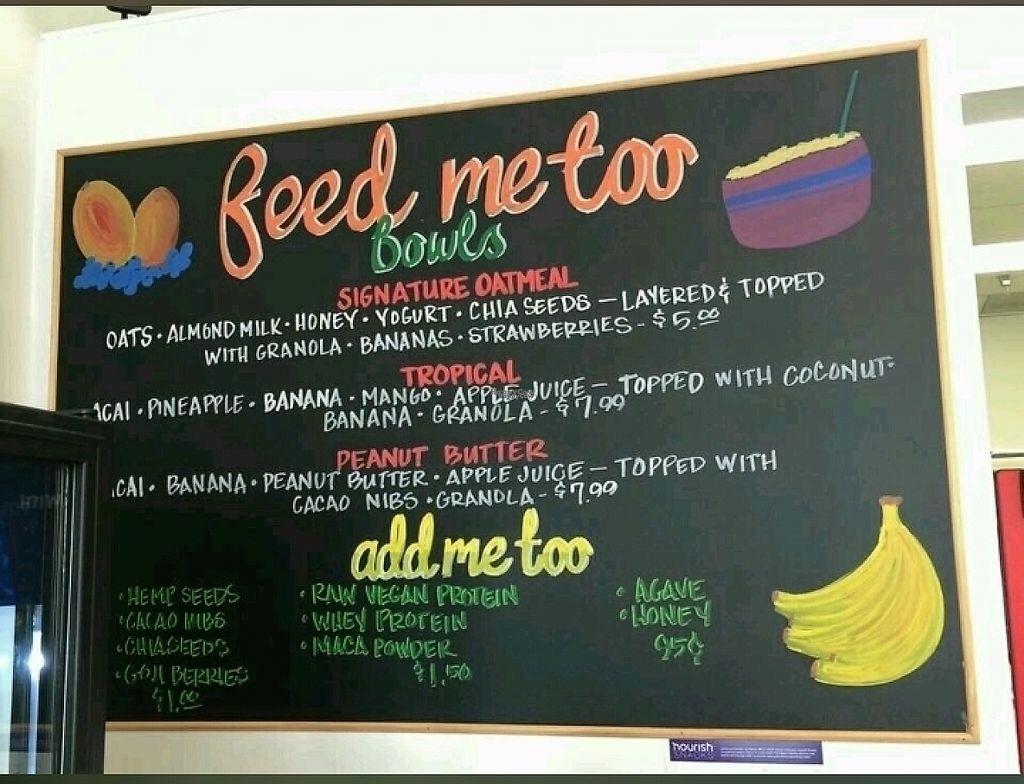 feed me too
Bowls
SIGNATURE OATMEAL
OATS · ALMOND MILK · HONEY · YOGURT · CHIA SEEDS — LAYERED & TOPPED
WITH GRANOLA · BANANAS · STRAWBERRIES - $5.00
TROPICAL
ACAI · PINEAPPLE · BANANA · MANGO · APPLE JUICE — TOPPED WITH COCONUT ·
BANANA · GRANOLA - $7.99
PEANUT BUTTER
CAI · BANANA · PEANUT BUTTER · APPLE JUICE — TOPPED WITH
CACAO NIBS · GRANOLA - $7.99
add me too
· HEMP SEEDS
· CACAO NIBS
· CHIASEEDS
· GOJI BERRIES
$1.00
· RAW VEGAN PROTEIN
· WHEY PROTEIN
· MACA POWDER
$1.50
· AGAVE
· HONEY
95¢
nourish
SNACKS